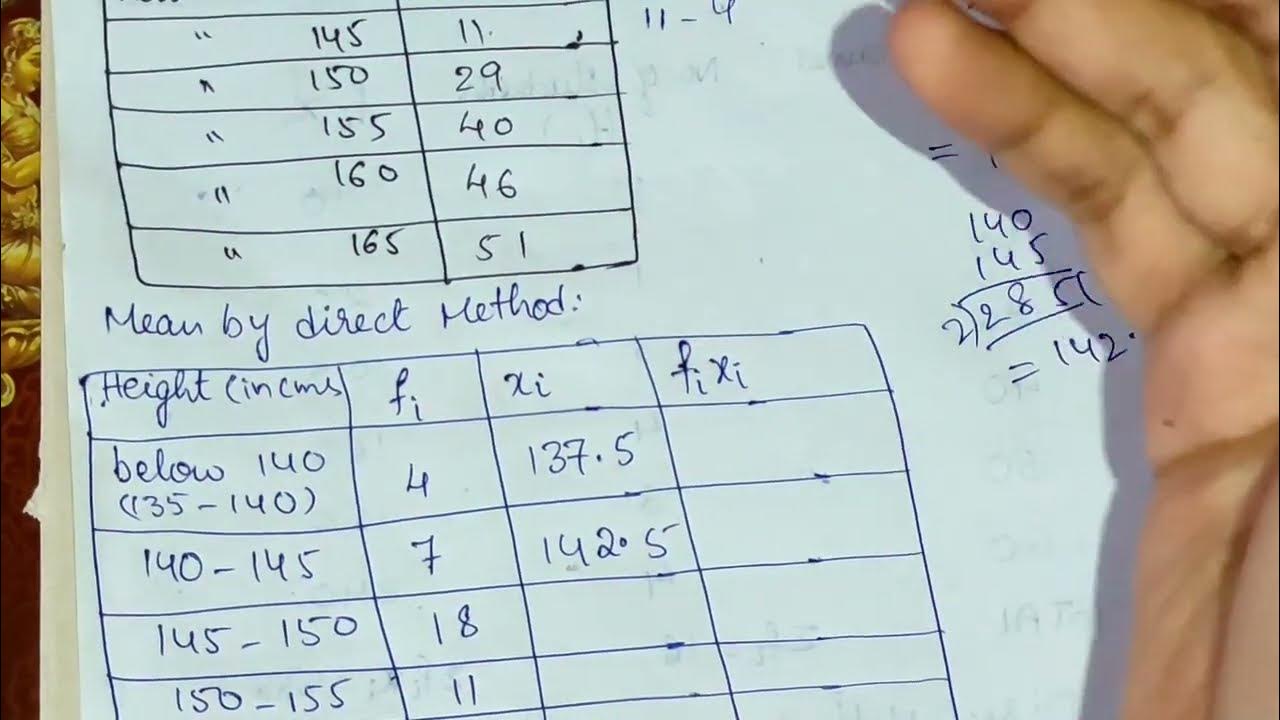 " 145 11.
" 150 29
" 155 40
" 160 46
" 165 51
11 - 4
Mean by direct Method:
Height (in cms) fi xi fixi
below 140 4 137.5
(135 - 140)
140 - 145 7 142.5
145 - 150 18
150 - 155 11
=
140
145
2 285
= 142.